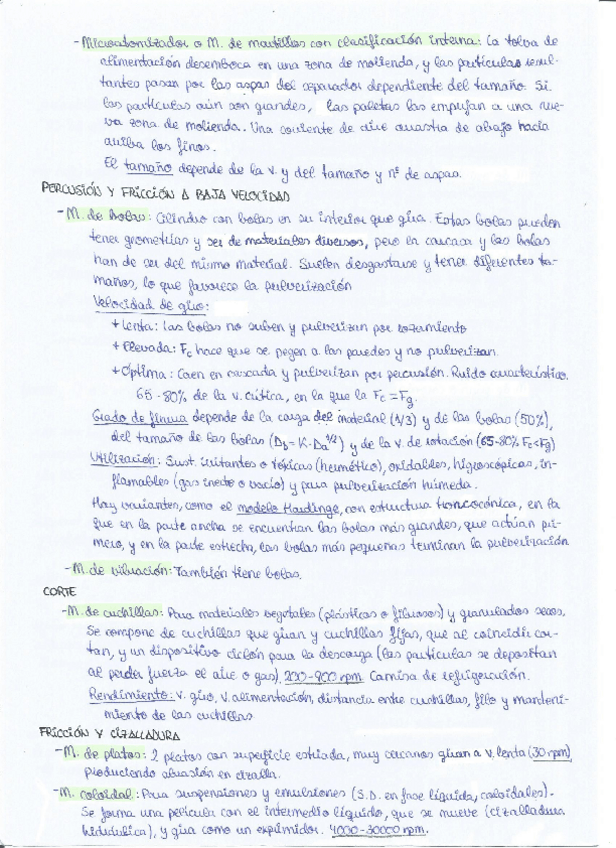 - Microatomizador o M. de martillos con clasificación interna: La tolva de
alimentación desemboca en una zona de molienda, y las partículas resul-
tantes pasan por las aspas del separador dependiente del tamaño. Si
las partículas aún son grandes, las paletas las empujan a una nue-
va zona de molienda. Una corriente de aire arrastra de abajo hacia
arriba los finos.
El tamaño depende de la v. y del tamaño y nº de aspas.
PERCUSIÓN Y FRICCIÓN A BAJA VELOCIDAD
- M. de bolas: Cilindro con bolas en su interior que gira. Estas bolas pueden
tener geometrías y ser de materiales diversos, pero la carcasa y las bolas
han de ser del mismo material. Suelen desgastarse y tener diferentes ta-
maños, lo que favorece la pulverización
Velocidad de giro:
+ Lenta: Las bolas no suben y pulverizan por rozamiento
+ Elevada: Fc hace que se pegen a las paredes y no pulverizan.
+ Óptima: Caen en cascada y pulverizan por percusión. Ruido característico.
65-80% de la v. crítica, en la que la Fc = Fg.
Grado de finura depende de la carga del material (1/3) y de las bolas (50%),
del tamaño de las bolas (Db = K·Da^1/2) y de la v. de rotación (65-80% Fc<Fg)
Utilización: Sust. irritantes o tóxicas (hermético), oxidables, higroscópicas, in-
flamables (gas inerte o vacío) y para pulverización húmeda.
Hay variantes, como el modelo Hardinge, con estructura troncocónica, en la
que en la parte ancha se encuentran las bolas más grandes, que actúan pri-
mero, y en la parte estrecha, las bolas más pequeñas terminan la pulverización
- M. de vibración: También tiene bolas.
CORTE
- M. de cuchillas: Para materiales vegetales (plásticos o fibrosos) y granulados secos.
Se compone de cuchillas que giran y cuchillas fijas, que al coincidir cor-
tan, y un dispositivo ciclón para la descarga (las partículas se depositan
al perder fuerza el aire o gas). 200-900 rpm. Camisa de refrigeración.
Rendimiento: v. giro, v. alimentación, distancia entre cuchillas, filo y manteni-
miento de las cuchillas
FRICCIÓN Y CIZALLADURA
- M. de platos: 2 platos con superficie estriada, muy cercanos giran a v. lenta (30 rpm)
produciendo abrasión en cizalla.
- M. coloidal: Para suspensiones y emulsiones (S.D. en fase líquida, coloidales).
Se forma una película con el intermedio líquido, que se mueve (cizalladura
hidráulica), y gira como un exprimidor. 4000-30000 rpm.